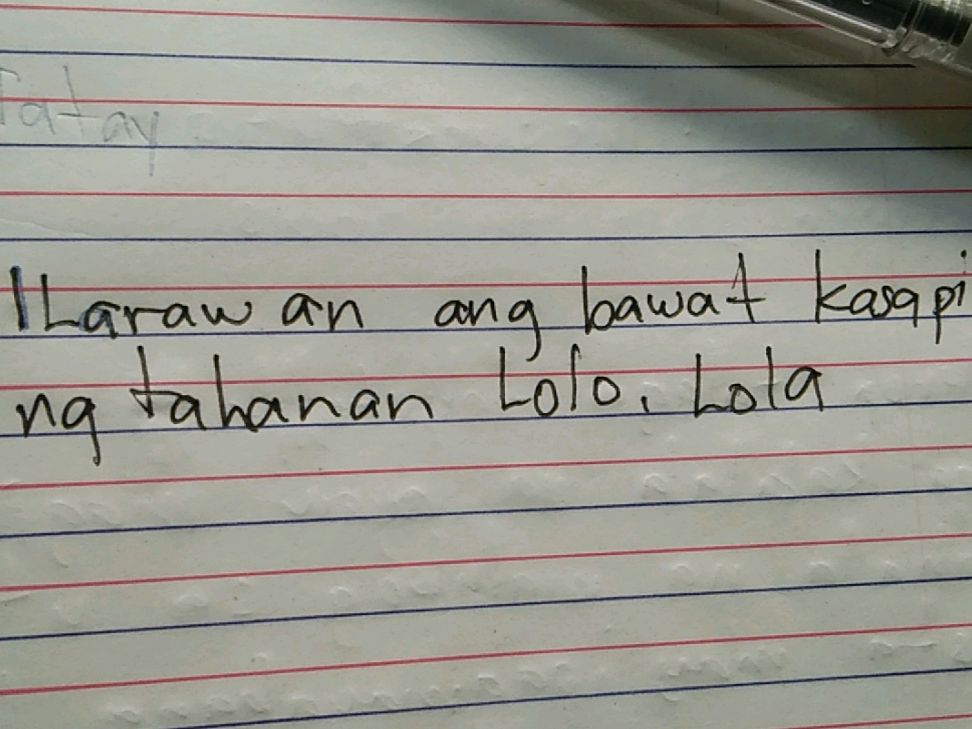 Tatay
ILarawan ang bawat kasapi
ng tahanan Lolo, Lola